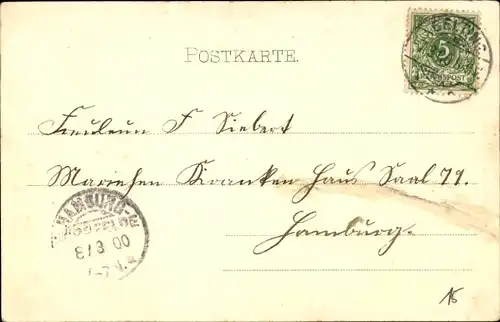 POSTKARTE.
5
REICHSPOST
Freuleun F Siebert
Mariehen Kranken Haus Saal 79.
Hamburg.
HAMBURG
8/3 00